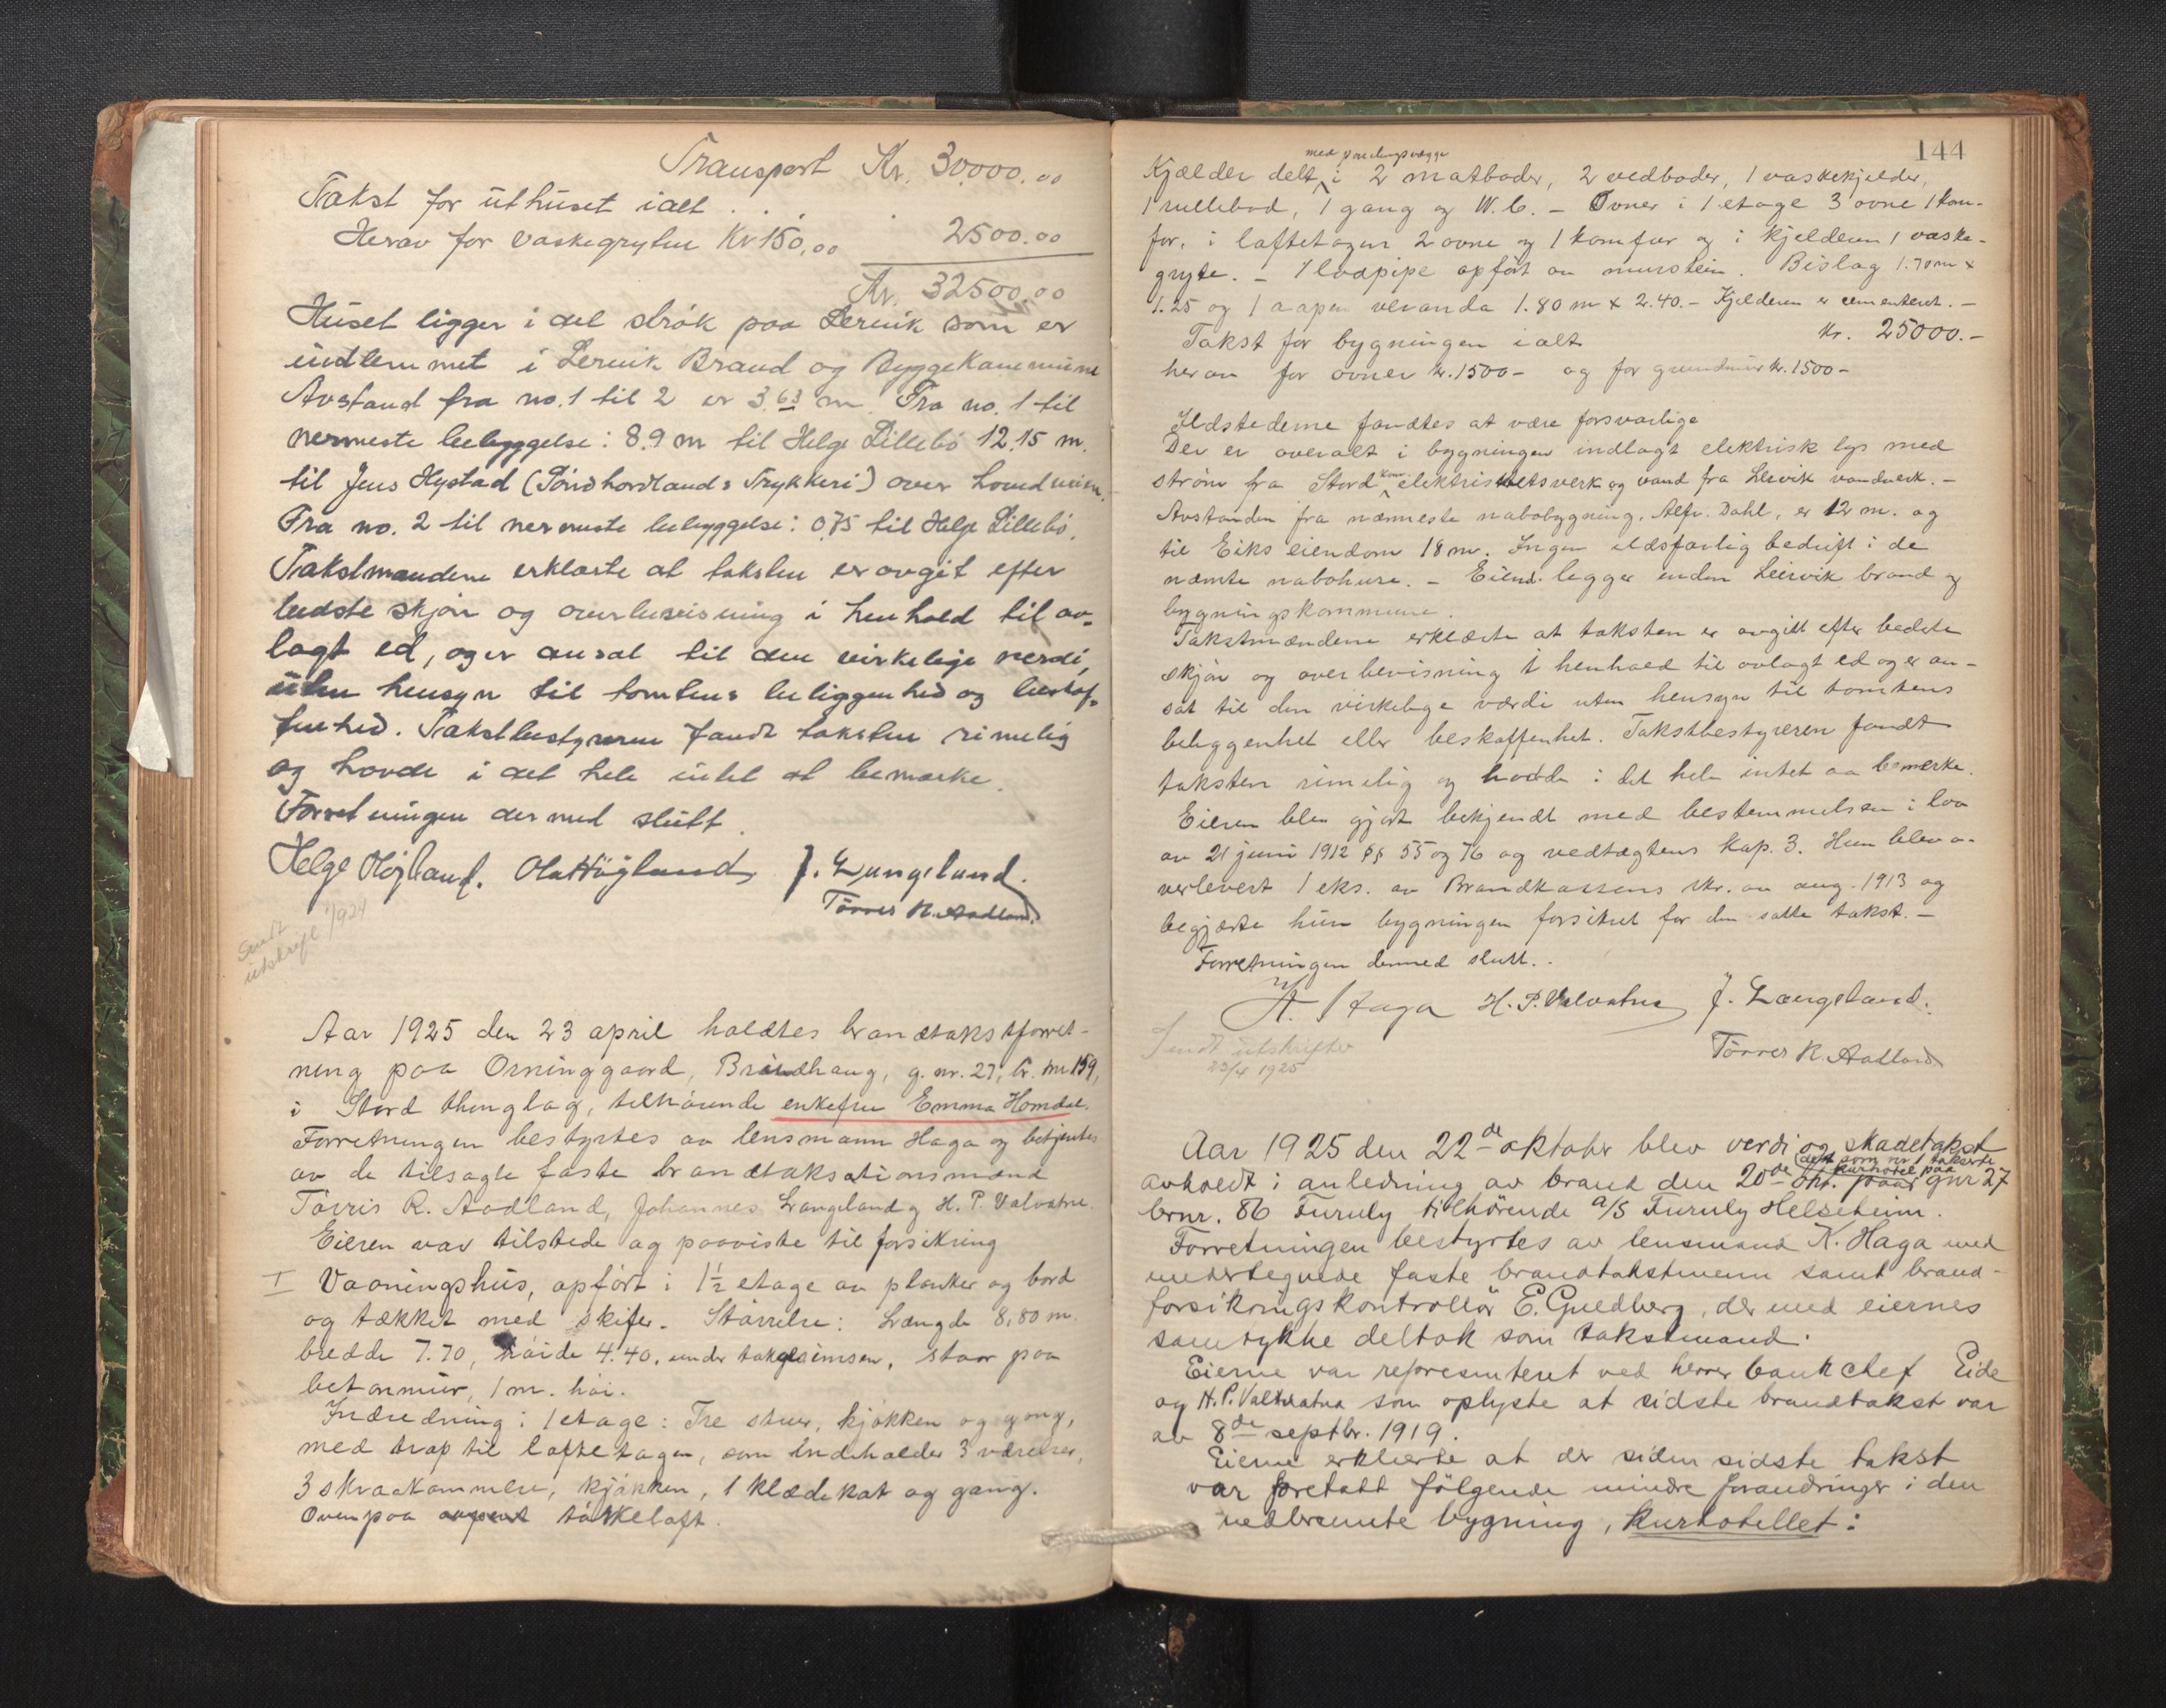 Transport Kr. 30,000.00
Takst for uthuset ialt . . . . 2500.00
Herav for vaskegryten Kr 150,00
Kr. 32500,00
Huset ligger i det strøk paa Lervik som er
indlemmet i Lervik Brand og Byggekommune
Avstand fra no. 1 til 2 er 3.63 m. Fra no. 1 til
nermeste bebyggelse: 8.9 m til Helge Lillebø 12,15 m.
til Jens Hystad (Söndhordlands Trykkeri) over hovedveien.
Fra no. 2 til nermeste bebyggelse: 0,75 til Helge Lillebø.
Takstmændene erklærte at taksten er avgit efter
bedste skjön og overbevisning i henhold til av-
lagt ed, og er ansat til den virkelige verdi,
uten hensyn til tomtens beliggenhed og beskaf-
fenhed. Takstbestyreren fandt taksten rimelig
og havde i det hele intet at bemærke.
Forretningen dermed slutt.
Helge Höjland. Ola Höyland J. Langeland.
Törres R. Aadland
Sendt
utskrift 1/1924
Aar 1925 den 23 april holdtes brandtakstforret-
ning paa Orninggaard, Brandhaug, g. nr. 27, br. nr 159,
i Stord thinglag, tilhørende enkefru Emma Homdal.
Forretningen bestyrtes av lensmann Haga og betjentes
av de tilsagte faste brandtakstionsmænd
Törris R. Aadland, Johannes Langeland og H. P. Valvatne.
Eieren var tilstede og paaviste til forsikring
I Vaaningshus, opført i 1½ etage av planker og bord
og tækket med skifer. Størrelse: Længde 8,80 m.
bredde 7.70, høide 4.40, under takgesimsen, staar paa
betonmur, 1 m. høi.
Indredning: 1 etage: Tre stuer, kjøkken og gang,
med trap til loftetagen, som indeholder 3 værelser,
3 skraakammere, kjøkken, 1 klædekot og gang.
Ovenpaa tørkeloft.
144
med
Kjælder delt i 2 matboder, 2 vedboder, 1 vaskekjelder,
1 rullebod, 1 gang og W.C. – Ovner i 1 etage 3 ovne 1 kom-
fur, i loftetagen 2 ovne og 1 komfur og i kjelderen 1 vaske-
gryte. – 1 ildpipe opført av murstein. Bislag 1.70 m x
1.25 og 1 aapen veranda 1.80 m x 2.40. – Kjelderen er cementeret. –
Takst for bygningen ialt kr. 25000.–
herav for ovner kr. 1500– og for grundmur kr. 1500–
Ildstederne fandtes at være forsvarlige
Der er overalt i bygningen indlagt elektrisk lys med
kom.
strøm fra Stord elektrisitetsverk og vand fra Leirvik vandverk. –
Avstanden fra næmneste nabobygning, Alfr. Dahl, er 12 m. og
til Eiks eiendom 18 m. Ingen ildsfarlig bedrift i de
næmte nabohuse. – Eiend. legger under Leirvik brand og
bygningskommune.
Takstmændene erklærte at taksten er avgitt efter bedste
skjøn og overbevisning i henhold til avlagt ed og er an-
sat til den virkelige værdi uten hensyn til tomtens
beliggenhet eller beskaffenhet. Takstbestyreren fandt
taksten rimelig og hadde i det hele intet aa bemerke.
Eieren blev gjort bekjendt med bestemmelsen i lov
av 21 juni 1912 §§ 55 og 76 og vedtægtens kap. 3. Hun blev o-
verlevert 1 eks. av Brandkassens skr. av aug. 1913 og
begjærte hun bygningen forsikret for den satte takst. –
Forretningen dermed slutt..
K. Haga H. P. Valvatne J. Langeland.
Törres R. Aadland
Sendt utskrifter
23/4 1925
Aar 1925 den 22de oktober blev verdi og skadetakst
det som nr 1 takserte
kurhotel paa
avholdt i anledning av brand den 20de okt. paa gnr 27
brnr. 86 Furuly tilhörende a/S Furuly Helseheim.
Forretningen bestyrtes av lensmand K. Haga med
undertegnede faste brandtakstmenn samt brand-
forsikringskontrollör E. Guldberg, der med eiernes
samtykke deltok som takstmand.
Eierne var representeret ved herrer bankchef Eide
og H. P. Valvatna som oplyste at sidste brandtakst var
av 8de septbr. 1919.
Eierne erklærte at der siden sidste takst
var foretatt fölgende mindre forandringer i den
nedbrente bygning, kurhotellet: